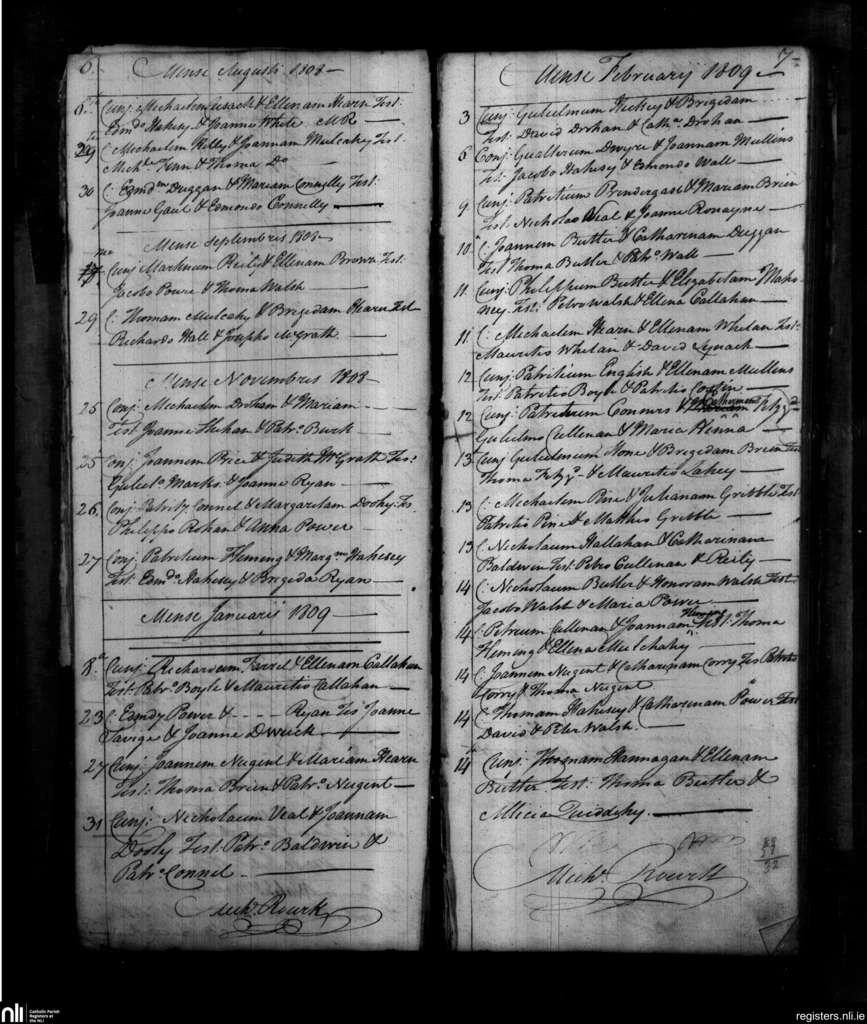 6.
Mense Augusti 1808
6th Conj. Michaelem Cusack & Ellenam Hearn Test.
Edmdo Hahesy & Joanne White MR
29 C. Michaelem Kelly & Joannam Mulcahy Test.
Michl. Finn & Thoma Do
30 C. Edmdm Duggan & Mariam Connelly Test.
Joanne Gaul & Edmondo Connelly
Mense Septembris 1808
Conj Marknum Reily & Ellenam Brown Test.
Jacobo Power & Thoma Walsh
29 C. Thomam Mulcahy & Brigedam Hearn Test
Richardo Hall & Josepho McGrath
Mense Novembris 1808
25 Conj. Michaelem Drohan & Mariam
Test Joanne Shehan & Patro. Burk
25 Conj. Joannem Price & Judith McGrath Test.
Guliel. Marks & Joanne Ryan
26. Conj. Patrity Connel & Margaretam Dooly Tes
Philippo Rohan & Anna Power
27 Conj. Patritium Fleming & Margm Hahesey
Test. Edmdo. Hahesey & Brigeda Ryan
Mense Januarii 1809
8.a Conj. Richardum Farrel & Ellenam Callahan
Test. Patr. Boyle & Mauritio Callahan
23 C. Edmdy Power & - - - - Ryan Tes Joanne
Savige & Joanne Dwuick
27 Conj. Joannem Nugent & Mariam Hearn
Test. Thoma Brien & Patro. Nugent
31 Conj. Nicholaum Veal & Joannam
Dooly Test. Patro. Baldwin &
Patro. Connel
Michl. Rourk
7
Mense February 1809
3 Conj. Gulielmum Hickey & Brigedam
Test. David Drohan & Cathna Drohan
6 Conj. Gualterum Dwyre & Joannam Mullins
Ts. Jacobo Hahesy & Edmondo Wall
9 Conj. Patritium Prendergast & Mariam Brien
Test. Nicholas Veal & Joanne Ronayne
10 C. Joannem Butler & Catharinam Duggan
Test Thoma Butler & Patro. Wall
11 Conj. Philippum Butler & Elizabetam Maho-
ney Tst. Petro Walsh & Ellena Callahan
11. C. Michaelem Hearn & Ellenam Whelan Test.
Mauritio Whelan & David Lynach
12 Conj. Patritium English & Ellenam Mullens
Test. Patritio Boyle & Patritio
12 Conj. Patritium Connors & Mariam Catherinam Fitzgd
Gulielmo Cullenan & Maria Kenna
13 Conj Gulielmum Hone & Brigedam Brien Test
Thoma Fitzg. & Mauritio Lahey
13 C. Michaelem Pine & Julianam Gribble Test
Patritio Pine & Matthio Gribble
13 C. Nicholaum Hallahan & Catharinam
Baldwin Test. Petro Cullenan & Reily
14 C. Nicholaum Butler & Honoram Walsh Test
Jacobo Walsh & Maria Power
14 C. Petreum Cullenan & Joannam Fleming Test. Thoma
Fleming & Ellena Mulchahy
14 C. Joannem Nugent & Catharinam Corry Tes Patritio
Corry & Thoma Nugent
14 C. Thomam Hahesey & Catharinam Power Test
David & Peter Walsh.
14 Conj. Thomam Hannagan & Ellenam
Butler Test. Thoma Butler &
Allicia
Michl. Rourk
32
nli
Catholic Parish
Registers at
the NLI
registers.nli.ie